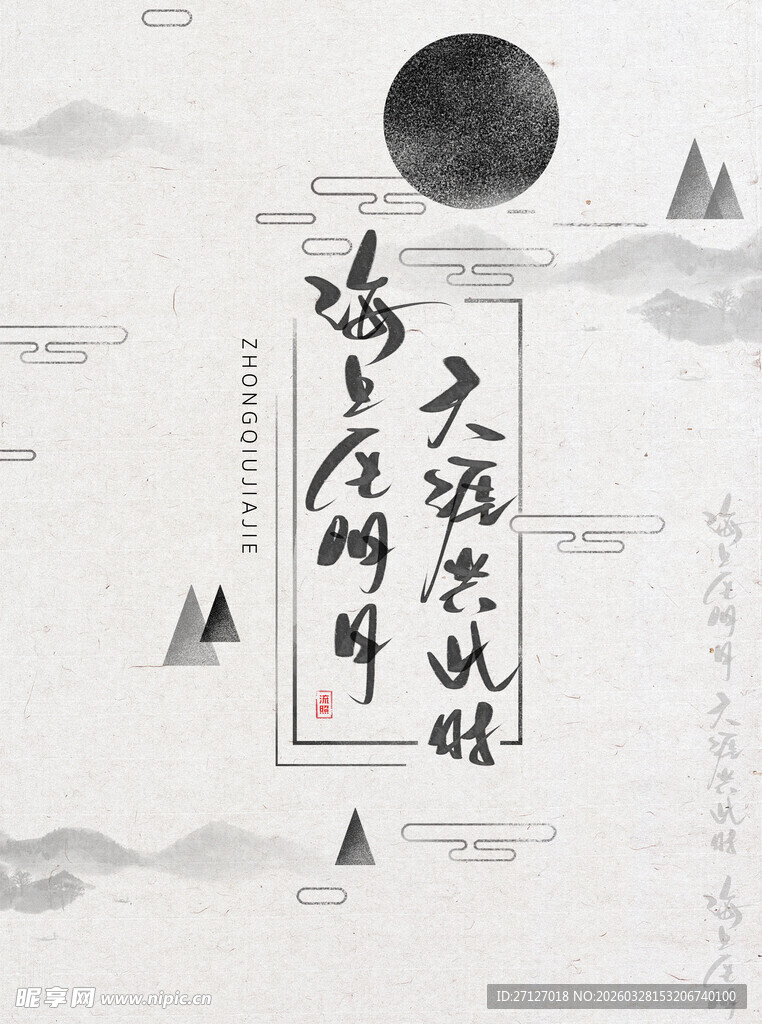 海上生明月
天涯共此时
ZHONGQIUJIAJIE
流照
海上生明月 天涯共此时 海上生
昵享网 www.nipic.cn
ID:27127018 NO:20260328153206740100